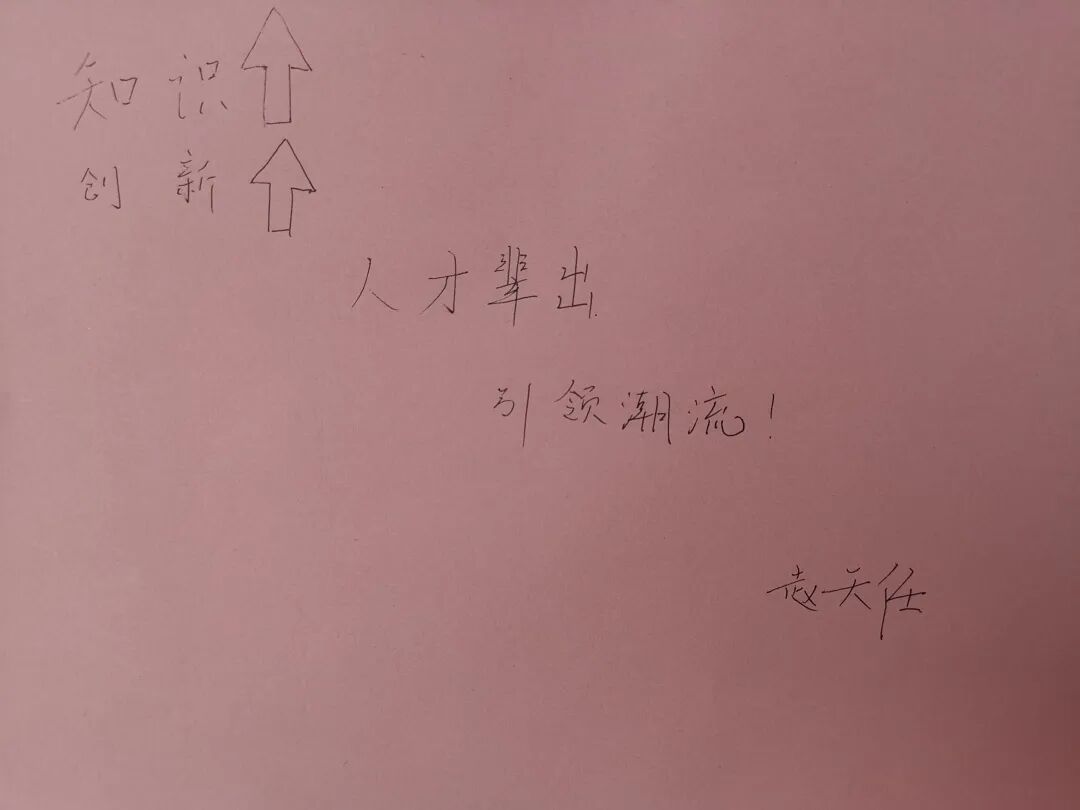 知识
创新
人才辈出
引领潮流!
赵天任